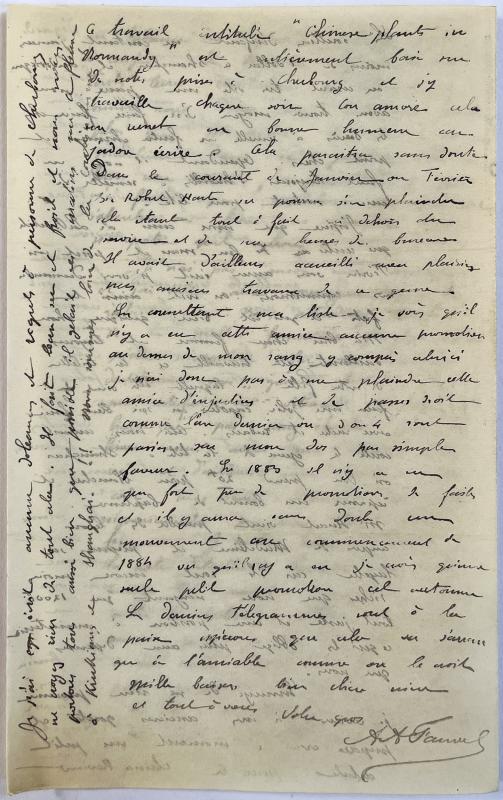 Ce travail intitulé "Chinese plants in
Normandy" est entièrement basé sur
de notes prises à Cherbourg et j'y
travaille chaque soir con amore cela
me remet en bonne humeur car
j'adore écrire. Cela paraîtra sans doute
Dans le courant de Janvier ou Février
Sir Robert Hart ne pourra s'en plaindre
cela étant tout à fait dehors du
service et de mes heures de bureau
Il avait d'ailleurs accueilli avec plaisir
mes anciens travaux de ce genre
En consultant ma liste je vois qu'il
n'y a eu cette année aucune promotion
au dessus de mon rang y compris celui ci
je n'ai donc pas à me plaindre cette
année d'injustices et de passe droit
comme l'an dernier où 3 ou 4 sont
passés sur mon dos par simple
faveur. En 1883 il n'y a eu
que fort peu de promotions de faites
et il y aura sans doute un
mouvement au commencement de
1884 vu qu'il n'y a eu je crois qu'une
seule petite promotion cet automne
Les derniers télégrammes sont à la
paix espérons que cela se
à l'amiable comme on le croit
Mille baisers bien chère mère
et tout à vous Votre gros
A A Fauvel
Je n'ai vraiment et regrets personne à Cherbourg
ne voyez rien de tout cela. Il fait bien sec et froid et nous nous
portons tous aussi bien que possible il gelait ces matins
à Kiukiang et Shanghai. Nous sommes loin de la